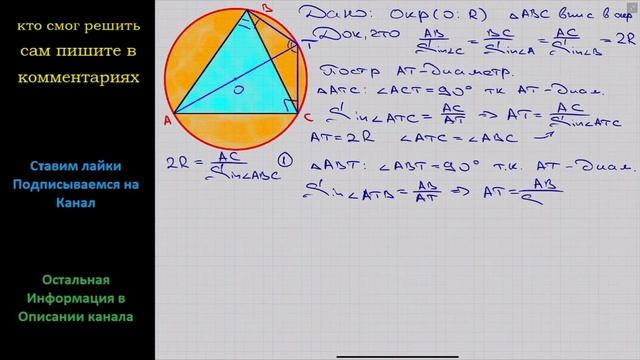 кто смог решить
сам пишите в
комментариях
Ставим лайки
Подписываемся на
Канал
Остальная
Информация в
Описании канала
B
T
O
A
C
Дано: Окр(O; R) △ABC впис в окр
Док, что AB/Sin∠C = BC/Sin∠A = AC/Sin∠B = 2R
Постр AT-Диаметр.
△ATC: ∠ACT=90° тк AT-Диам.
Sin∠ATC = AC/AT ⇒ AT = AC/Sin∠ATC
AT=2R ∠ATC = ∠ABC
2R = AC/Sin∠ABC ①
△ABT: ∠ABT=90° т.к. AT-Диам.
Sin∠ATB = AB/AT ⇒ AT = AB/S